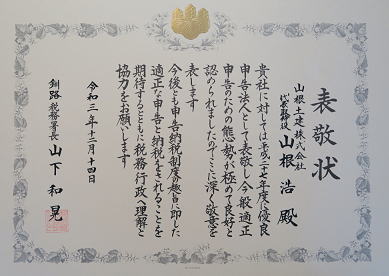 表敬状
山根土建株式会社
代表取締役 山根 浩 殿
貴社に対しては平成二十七年度に優良
申告法人として表敬し今般適正
申告のための態勢が極めて良好と
認められましたのでここに深く敬意を
表します
今後とも申告納税制度の趣旨に即した
適正な申告と納税をされることを
期待するとともに税務行政へ理解と
協力をお願いします
令和三年十二月十四日
釧路税務署長 山下 和晃